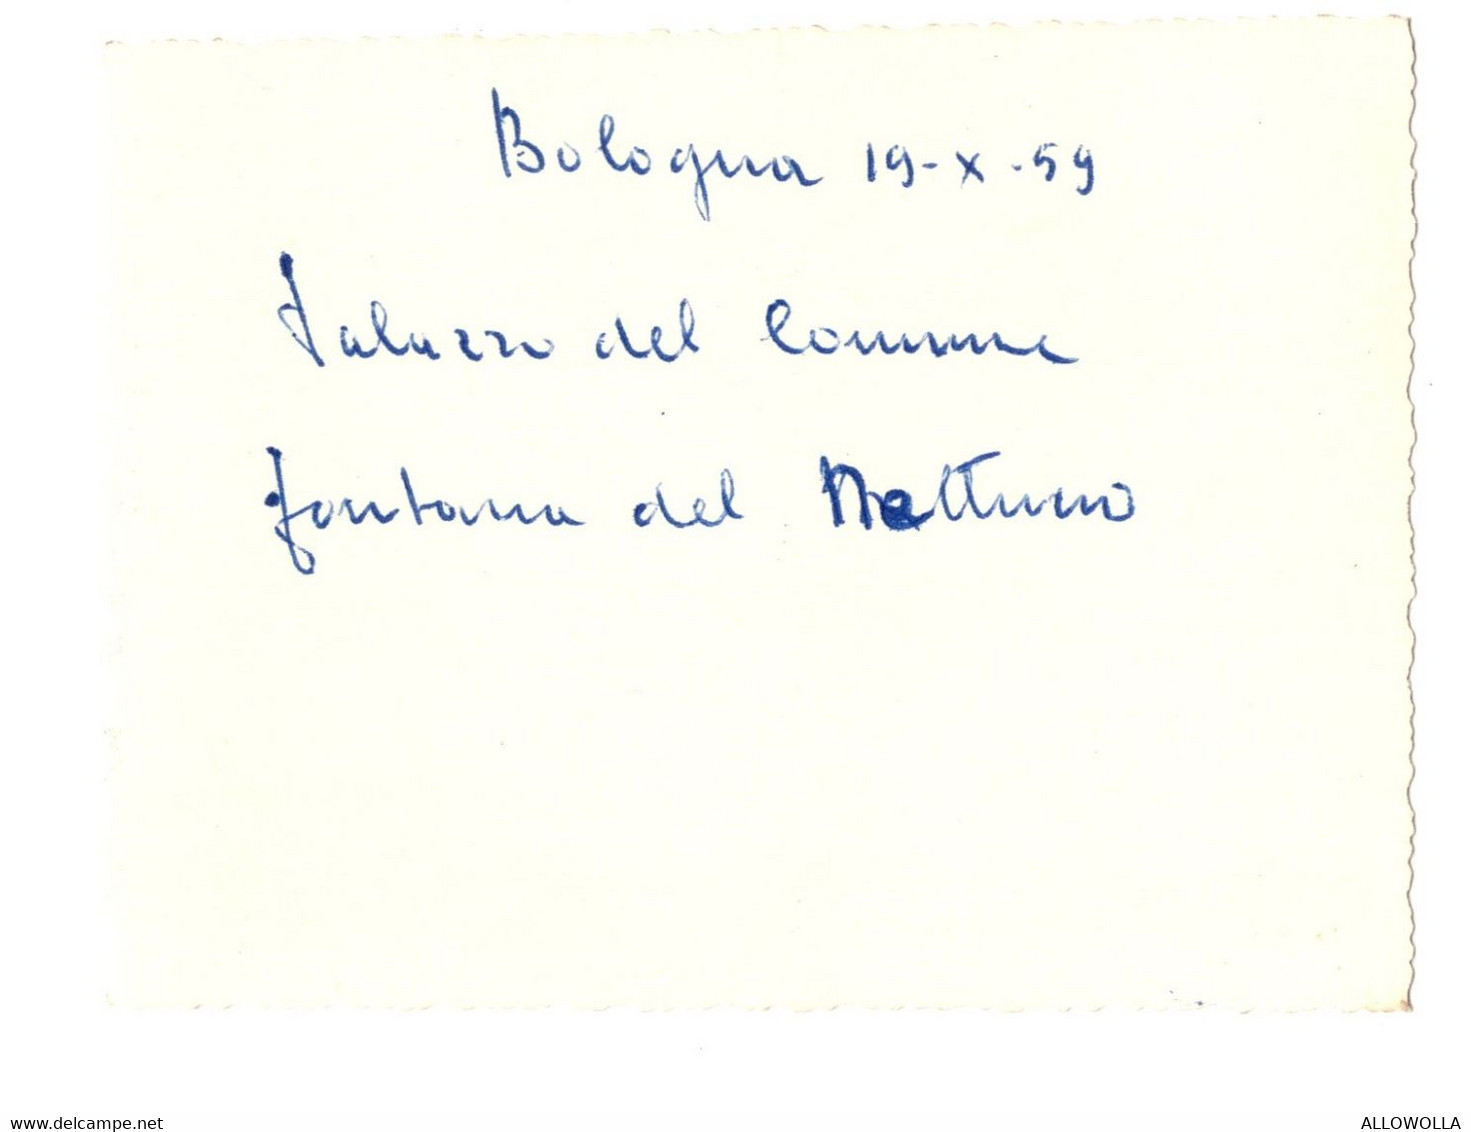 Bologna 19-X-59
Palazzo del Comune
fontana del Nettuno
www.delcampe.net
ALLOWOLLA